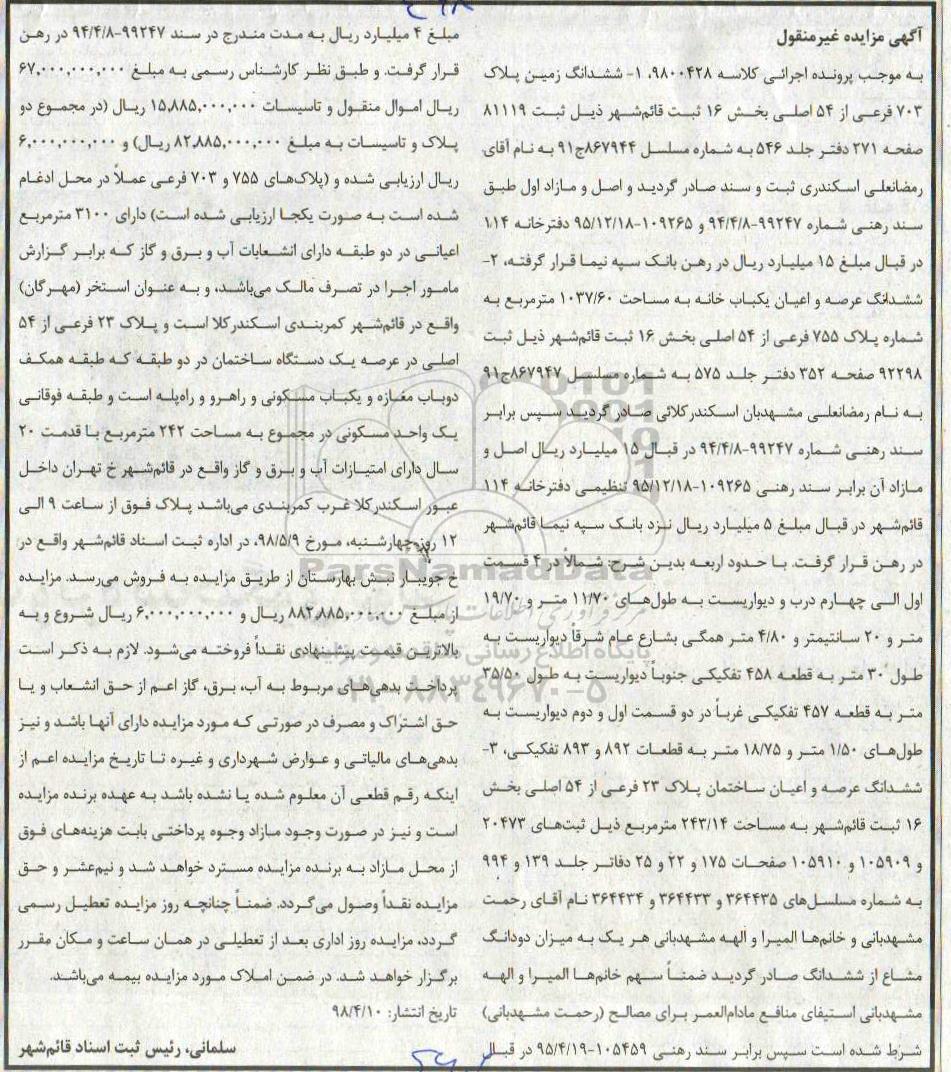 آگهی مزایده غیرمنقول
به موجب پرونده اجرائی کلاسه ۹۸۰۰۴۲۸، ۱- ششدانگ زمین پلاک
۷۰۳ فرعی از ۵۴ اصلی بخش ۱۶ ثبت قائم‌شهر ذیل ثبت ۸۱۱۱۹
صفحه ۲۷۱ دفتر جلد ۵۴۶ به شماره مسلسل ۸۶۷۹۴۴ج۹۱ به نام آقای
رمضانعلی اسکندری ثبت و سند صادر گردید و اصل و مازاد اول طبق
سند رهنی شماره ۹۹۲۴۷-۹۴/۴/۸ و ۱۰۹۲۶۵-۹۵/۱۲/۱۸ دفترخانه ۱۱۴
در قبال مبلغ ۱۵ میلیارد ریال در رهن بانک سپه نیما قرار گرفته، ۲-
ششدانگ عرصه و اعیان یکباب خانه به مساحت ۱۰۳۷/۶۰ مترمربع به
شماره پلاک ۷۵۵ فرعی از ۵۴ اصلی بخش ۱۶ ثبت قائم‌شهر ذیل ثبت
۹۲۲۹۸ صفحه ۳۵۲ دفتر جلد ۵۷۵ به شماره مسلسل ۸۶۷۹۴۷ج۹۱
به نام رمضانعلی مشهدبان اسکندرکلائی صادر گردید سپس برابر
سند رهنی شماره ۹۹۲۴۷-۹۴/۴/۸ در قبال ۱۵ میلیارد ریال اصل و
مازاد آن برابر سند رهنی ۱۰۹۲۶۵-۹۵/۱۲/۱۸ تنظیمی دفترخانه ۱۱۴
قائم‌شهر در قبال مبلغ ۵ میلیارد ریال نزد بانک سپه نیما قائم‌شهر
در رهن قرار گرفت. با حدود اربعه بدین شرح: شمالاً در ۴ قسمت
اول الی چهارم درب و دیواریست به طول‌های ۱۱/۷۰ متر و ۱۹/۷۰
متر و ۲۰ سانتیمتر و ۴/۸۰ متر همگی بشارع عام شرقاً دیواریست به
طول ۳۰ متر به قطعه ۴۵۸ تفکیکی جنوباً دیواریست به طول ۳۵/۵۰
متر به قطعه ۴۵۷ تفکیکی غرباً در دو قسمت اول و دوم دیواریست به
طول‌های ۱/۵۰ متر و ۱۸/۷۵ متر به قطعات ۸۹۲ و ۸۹۳ تفکیکی، ۳-
ششدانگ عرصه و اعیان ساختمان پلاک ۲۳ فرعی از ۵۴ اصلی بخش
۱۶ ثبت قائم‌شهر به مساحت ۲۴۳/۱۴ مترمربع ذیل ثبت‌های ۲۰۴۷۳
و ۱۰۵۹۰۹ و ۱۰۵۹۱۰ صفحات ۱۷۵ و ۲۲ و ۲۵ دفاتر جلد ۱۳۹ و ۹۹۴
به شماره مسلسل‌های ۳۶۴۴۳۵ و ۳۶۴۴۳۳ و ۳۶۴۴۳۴ نام آقای رحمت
مشهدبانی و خانم‌ها المیرا و الهه مشهدبانی هر یک به میزان دودانگ
مشاع از ششدانگ صادر گردید ضمناً سهم خانم‌ها المیرا و الهه
مشهدبانی استیفای منافع مادام‌العمر برای مصالح (رحمت مشهدبانی)
شرط شده است سپس برابر سند رهنی ۱۰۵۴۵۹-۹۵/۴/۱۹ در قبال
مبلغ ۴ میلیارد ریال به مدت مندرج در سند ۹۹۲۴۷-۹۴/۴/۸ در رهن
قرار گرفت. و طبق نظر کارشناس رسمی به مبلغ ۶۷,۰۰۰,۰۰۰,۰۰۰
ریال اموال منقول و تاسیسات ۱۵,۸۸۵,۰۰۰,۰۰۰ ریال (در مجموع دو
پلاک و تاسیسات به مبلغ ۸۲,۸۸۵,۰۰۰,۰۰۰ ریال) و ۶,۰۰۰,۰۰۰,۰۰۰
ریال ارزیابی شده و (پلاک‌های ۷۵۵ و ۷۰۳ فرعی عملاً در محل ادغام
شده است به صورت یکجا ارزیابی شده است) دارای ۳۱۰۰ مترمربع
اعیانی در دو طبقه دارای انشعابات آب و برق و گاز که برابر گزارش
مامور اجرا در تصرف مالک می‌باشد، و به عنوان استخر (مهرگان)
واقع در قائم‌شهر کمربندی اسکندرکلا است و پلاک ۲۳ فرعی از ۵۴
اصلی در عرصه یک دستگاه ساختمان در دو طبقه که طبقه همکف
دوباب مغازه و یکباب مسکونی و راهرو و راه‌پله است و طبقه فوقانی
یک واحد مسکونی در مجموع به مساحت ۲۴۲ مترمربع با قدمت ۲۰
سال دارای امتیازات آب و برق و گاز واقع در قائم‌شهر خ تهران داخل
عبور اسکندرکلا غرب کمربندی می‌باشد پلاک فوق از ساعت ۹ الی
۱۲ روز چهارشنبه، مورخ ۹۸/۵/۹، در اداره ثبت اسناد قائم‌شهر واقع در
خ جویبار نبش بهارستان از طریق مزایده به فروش می‌رسد. مزایده
از مبلغ ۸۸۲,۸۸۵,۰۰۰,۰۰۰ ریال و ۶,۰۰۰,۰۰۰,۰۰۰ ریال شروع و به
بالاترین قیمت پیشنهادی نقداً فروخته می‌شود. لازم به ذکر است
پرداخت بدهی‌های مربوط به آب، برق، گاز اعم از حق انشعاب و یا
حق اشتراک و مصرف در صورتی که مورد مزایده دارای آنها باشد و نیز
بدهی‌های مالیاتی و عوارض شهرداری و غیره تا تاریخ مزایده اعم از
اینکه رقم قطعی آن معلوم شده یا نشده باشد به عهده برنده مزایده
است و نیز در صورت وجود مازاد وجوه پرداختی بابت هزینه‌های فوق
از محل مازاد به برنده مزایده مسترد خواهد شد و نیم‌عشر و حق
مزایده نقداً وصول می‌گردد. ضمناً چنانچه روز مزایده تعطیل رسمی
گردد، مزایده روز اداری بعد از تعطیلی در همان ساعت و مکان مقرر
برگزار خواهد شد. در ضمن املاک مورد مزایده بیمه می‌باشد.
تاریخ انتشار: ۹۸/۴/۱۰
سلمانی، رئیس ثبت اسناد قائم‌شهر
ParsNamadData
پایگاه اطلاع رسانی مناقصه و مزایده
۰۲۱-۸۸۳۴۹۶۷۰-۵